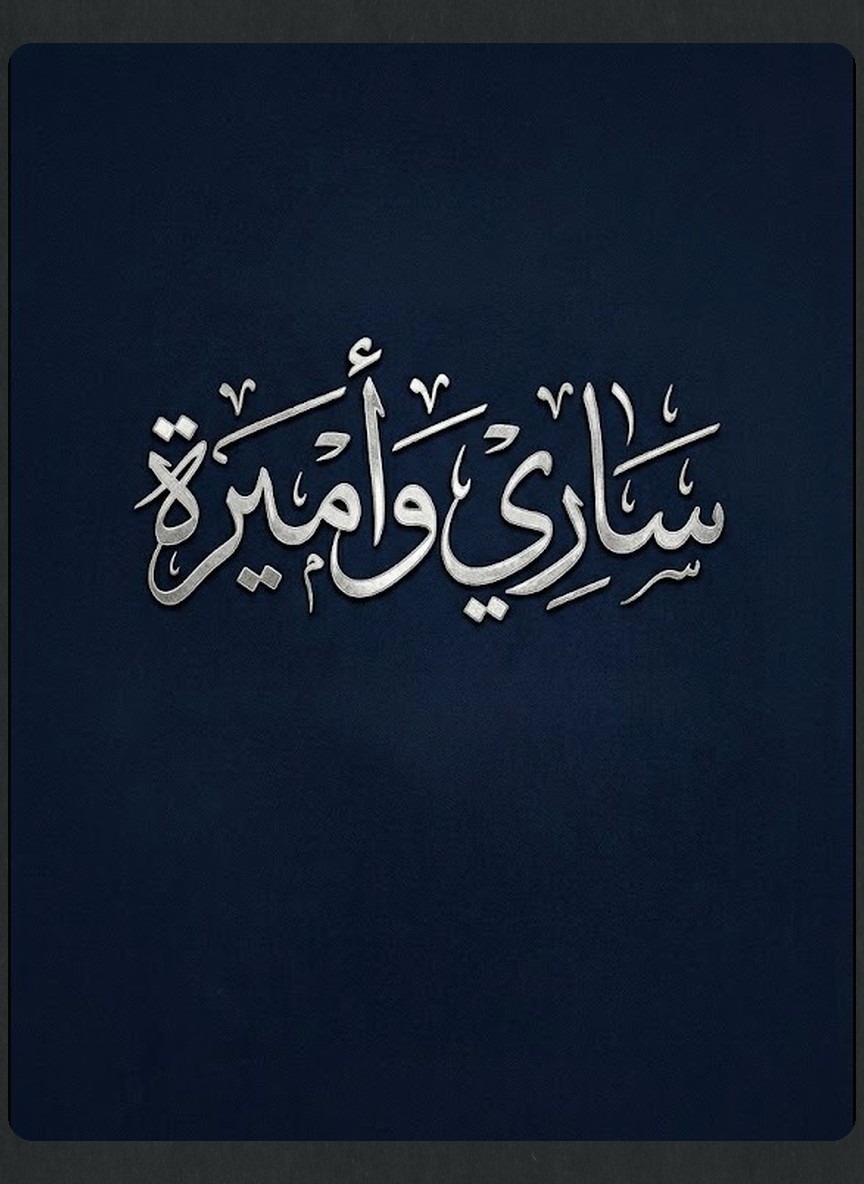 ساري وأميرة